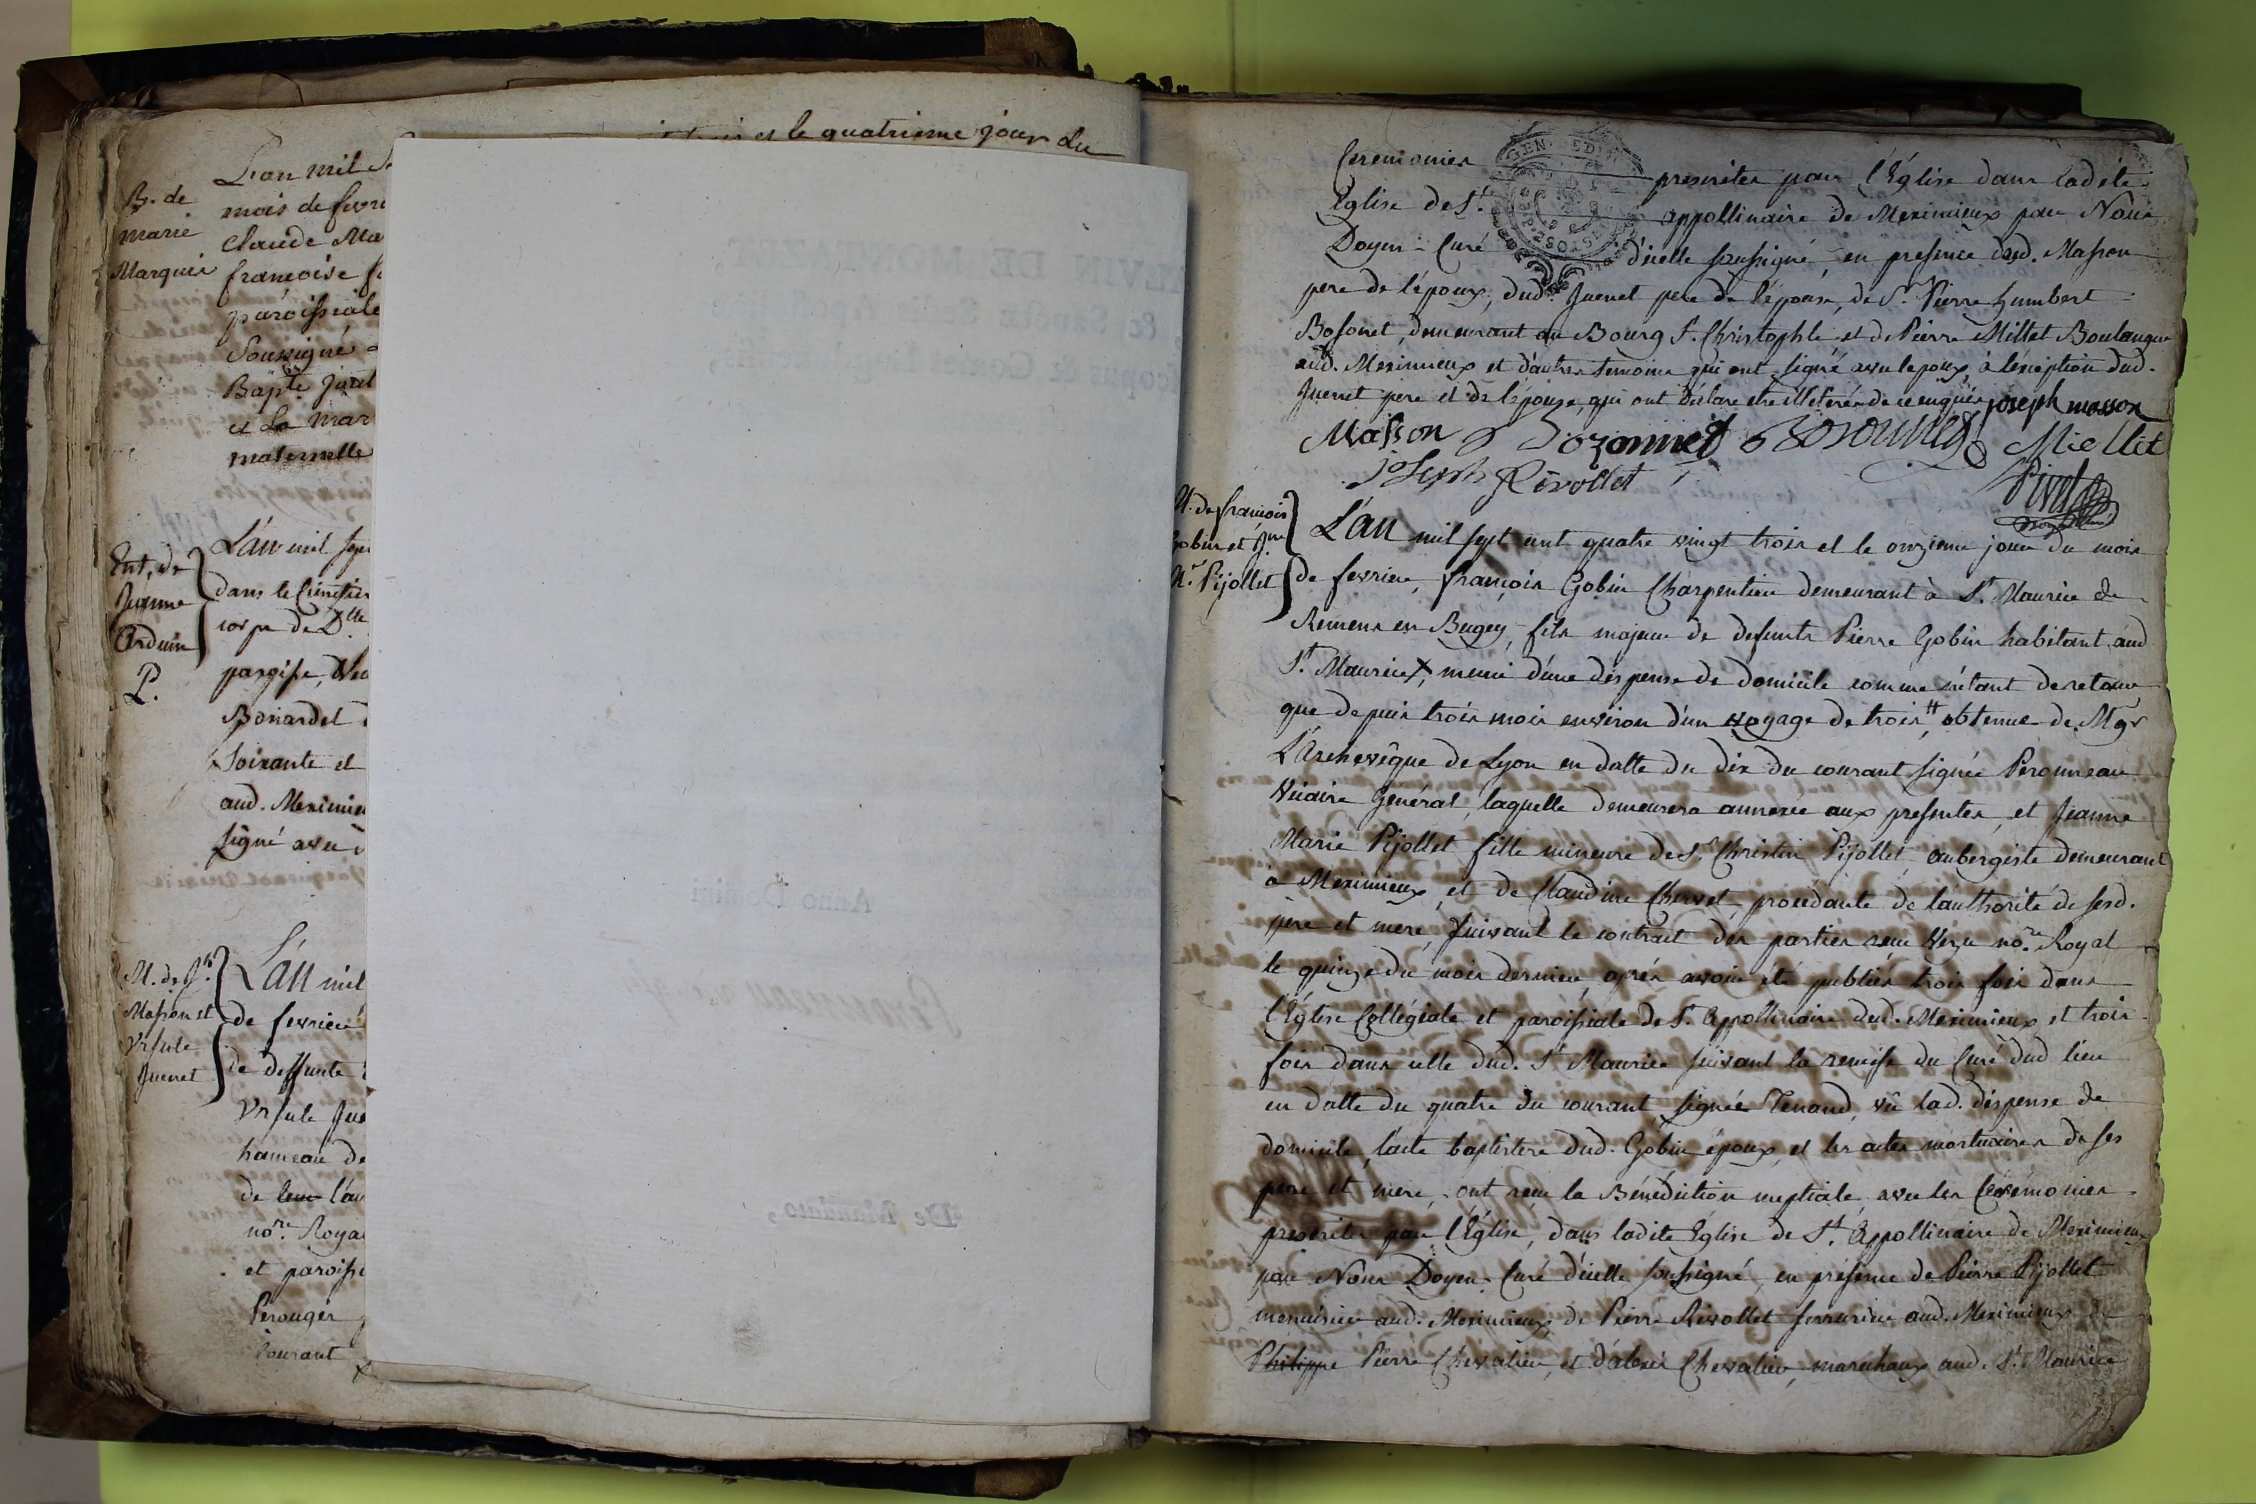 et le quatrieme jour du
B. de
marie
Marquis
L'an mil
mois de fevri
Claude Ma
francoise f
paroissiale
Soussigné
Bapte. Jual
et la mar
maternelle
Ent. de
Jeanne
Orduin
P.
L'an mil sep
dans le Cimetier
corps de Dlle
paroisse, Ve
Bonardel
Soixante et
aud. Meximie
signé avec
M. de Jh.
Masson et
Ursule
Juenet
L'an mil
de fevrier
de deffunte
Ursule Jue
hameau de
de leur l'au
nore. Roya
et paroissi
Perouges
Courant
GEN
Anno Domini
De Mandato,
Ceremonies prescrites par l'Église dans ladite
Eglise de St. appollinaire de Meximieux par Nous
Doyen-Curé d'icelle soussigné, en presence dud. Masson
pere de l'époux, dud. Juenet pere de l'épouse, de Sr. Pierre humbert
Bosonet, demeurant au Bourg St. Christophle, et de Pierre Millet Boulanger
aud. Meximieux et d'autres temoins qui ont signé avec l'epoux, à l'éxception dud.
Juenet pere et de l'épouse, qui ont déclaré être illeterés de ce enquis joseph masson
Masson Bozonnet Miellet
joseph Rivollet
M. de francois
Gobin et Jne
Me. Pijollet
L'an mil sept cent quatre vingt trois et le onzieme jour du mois
de fevrier, françois Gobin Charpentier demeurant à St. Maurice de
Remens en Bugey, fils majeur de defunts Pierre Gobin habitant aud
St. Maurice, muni d'une dispense de domicile comme n'étant de retour
que depuis trois mois environ d'un voyage de trois, obtenue de Mgr
L'Archevêque de Lyon en datte du dix du courant signée Peronneau
Vicaire Général, laquelle demeurera annexée aux presentes, et Jeanne
Marie Pijollet fille mineure de Sr. Christin Pijollet, aubergiste demeurant
à Meximieux, et de Claudine Chervet, procedante de l'authorité de sesd.
père et mere, suivant le contrat des parties reçu Verju nore. Royal
le quinze du mois dernier, après avoir été publiés trois fois dans
l'Église Collégiale et paroissiale de St. Appollinaire dud. Meximieux et trois
fois dans celle dud. St. Maurice suivant la remise du Curé dud lieu
en datte du quatre du courant signée Tenand, vû lad. dispense de
domicile, l'acte baptistere dud. Gobin époux, et les actes mortuaires de ses
pere et mere, ont reçu la Bénédiction nuptiale avec les Cérémonies
prescrites par l'Église, dans ladite Eglise de St. Appollinaire de Meximieux
par Nous Doyen-Curé d'icelle soussigné, en présence de Pierre Pijollet
menuisier aud. Meximieux, de Pierre Rivollet serrurier aud. Meximieux de
Philippe Pierre Chevalier, et d'alexis Chevalier, marechaux aud. St. Maurice